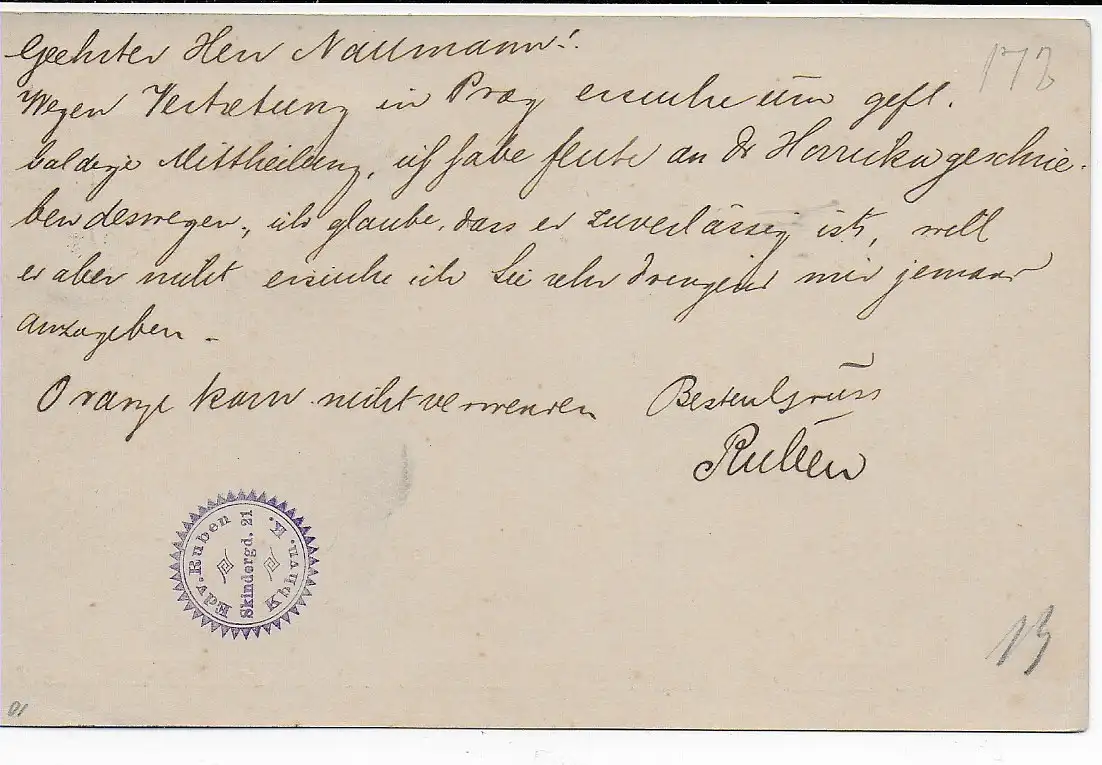 Geehrter Herr Naumann!
172
Wegen Vertretung in Prag ersuche um gefl.
baldige Mittheilung, ich habe heute an Dr Horricka geschrie-
ben deswegen, ich glaube, dass er zuverlässig ist, will
er aber nicht ersuche ich Sie sehr dringend mir jemand
anzugeben.
Orange kann nicht verwenden
Besten Gruss
Ruben
Edv. Ruben
Skindergd. 21
Kbhvn. K.
13
01